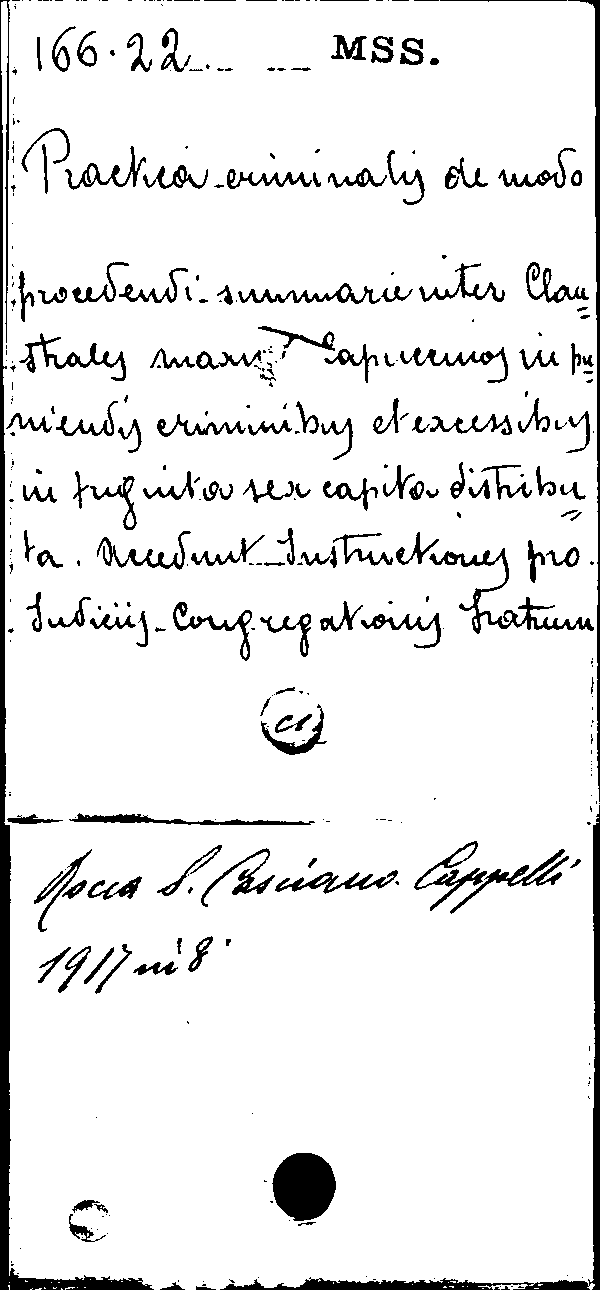 166.22 MSS.
Practica criminalis de modo
procedendi summarie inter Clau=
strales Capuccinos in pu=
niendis criminibus et excessibus
in triginta sex capita distribu=
ta. Accedunt Instructiones pro
Judiciis Congregationis fratrum
Rocca S. Casciano. Cappelli
1917 in 8.